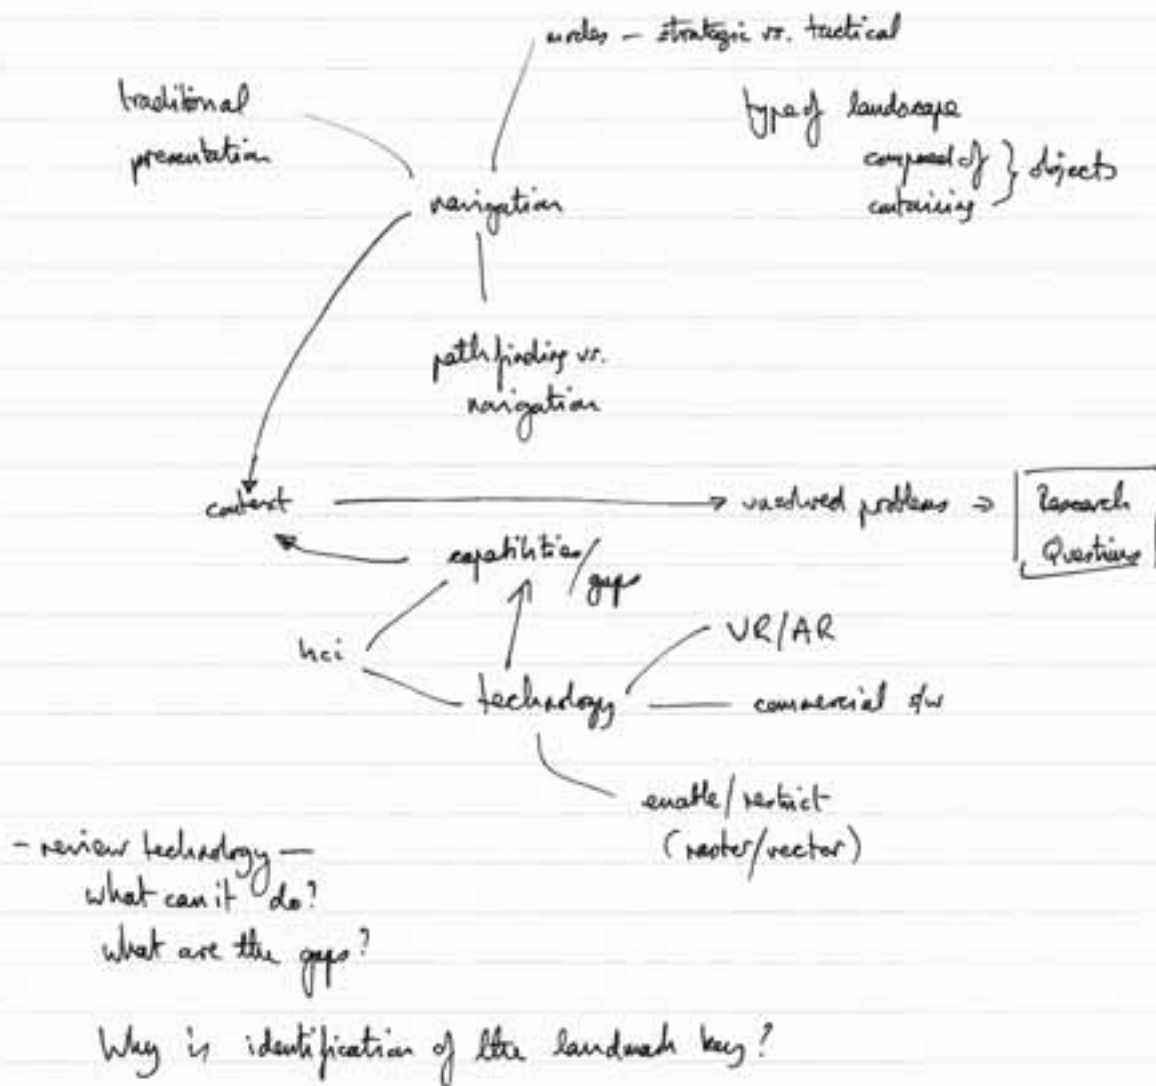 modes – strategic vs. tactical
traditional
presentation
type of landscape
composed of } objects
containing
navigation
path finding vs.
navigation
context
unsolved problems ⇒
Research
Questions
capabilities/
gaps
hci
VR/AR
technology
commercial s/w
enable/restrict
(raster/vector)
- review technology —
what can it do?
what are the gaps?
Why is identification of the landmark key?